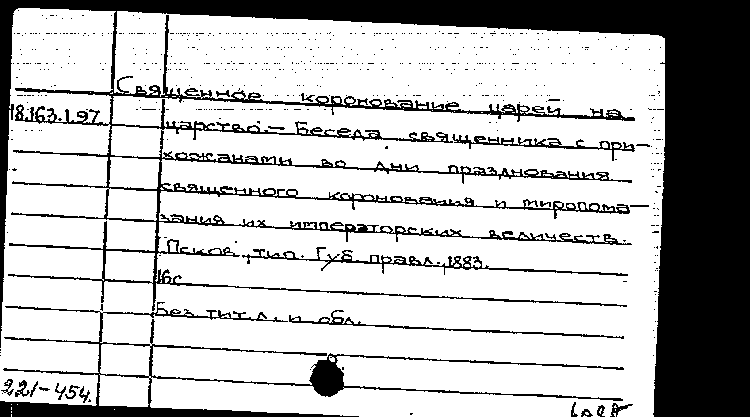 Священное коронование царей на
18.163.1.97.
царство.— Беседа священника с при-
хожанами во дни празднования
священного коронования и миропома-
зания их императорских величеств.
Псков, тип. Губ. правл., 1883.
16с
Без тит.л. и обл.
221-454.